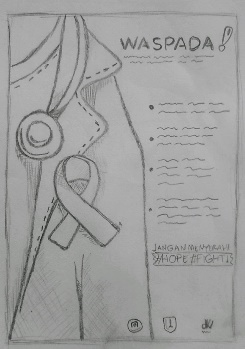 WASPADA!
JANGAN MENYERAH
#HOPE #FIGHT